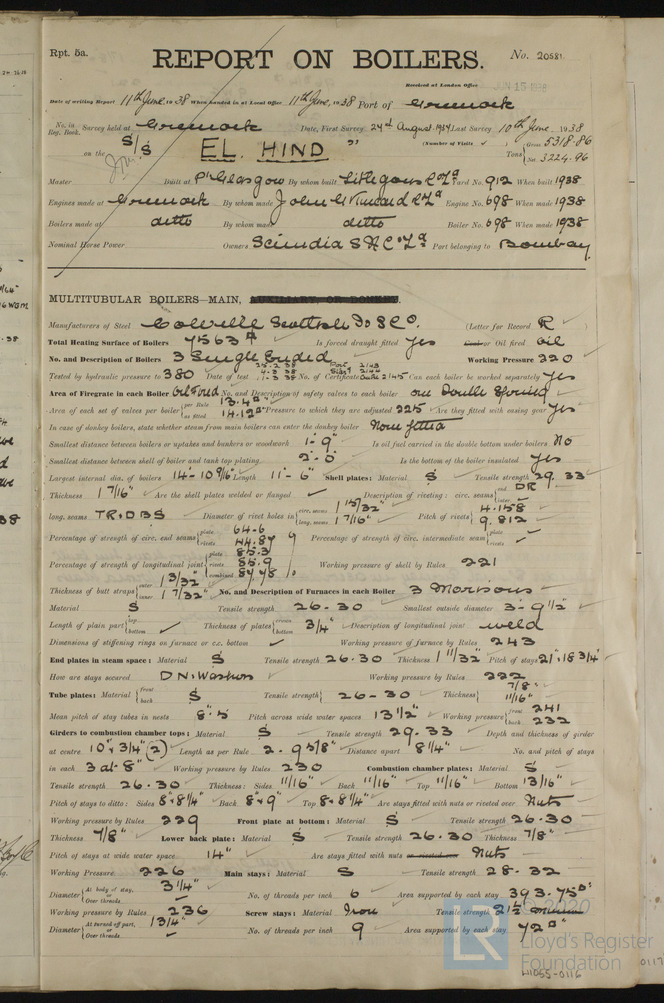 Rpt. 5a.
REPORT ON BOILERS.
No. 20581
Received at London Office JUN 15 1938
Date of writing Report 11th June 1938 When handed in at Local Office 11th June 1938 Port of Greenock
No. in Reg. Book. Survey held at Greenock Date, First Survey 24th August 1937 Last Survey 10th June 1938
on the S/S EL. HIND (Number of Visits ) Tons Gross 5318.86 Net 3224.96
Master Built at Pt Glasgow By whom built Lithgows Ld Yard No. 912 When built 1938
Engines made at Greenock By whom made John G Kincaid & Co Ld Engine No. 698 When made 1938
Boilers made at ditto By whom made ditto Boiler No. 698 When made 1938
Nominal Horse Power Owners Scindia S N Co Ld Port belonging to Bombay
MULTITUBULAR BOILERS—MAIN,
Manufacturers of Steel Colville Scottish (Letter for Record R
Total Heating Surface of Boilers 7563 Is forced draught fitted yes Coal or Oil fired oil
No. and Description of Boilers 3 Single Ended Working Pressure 220
Tested by hydraulic pressure to 380 Date of test No. of Certificate Can each boiler be worked separately yes
Area of Firegrate in each Boiler Oil Fired No. and Description of safety valves to each boiler one Double Spring
Area of each set of valves per boiler per Rule 13.4 as fitted 14.12 Pressure to which they are adjusted 225 Are they fitted with easing gear yes
In case of donkey boilers, state whether steam from main boilers can enter the donkey boiler None fitted
Smallest distance between boilers or uptakes and bunkers or woodwork 1'-9" Is oil fuel carried in the double bottom under boilers No
Smallest distance between shell of boiler and tank top plating 2'-0" Is the bottom of the boiler insulated yes
Largest internal dia. of boilers 14'-10 9/16" Length 11'-6" Shell plates: Material S Tensile strength 29.33
Thickness 1 7/16" Are the shell plates welded or flanged Description of riveting: circ. seams end DR inter.
long. seams TR.DBS Diameter of rivet holes in circ. seams 1 15/32" long. seams 1 7/16" Pitch of rivets 4.158 9.812
Percentage of strength of circ. end seams plate 64.6 rivets 44.87 Percentage of strength of circ. intermediate seam plate rivets
Percentage of strength of longitudinal joint plate 85.3 rivets 85.9 combined 87.78 Working pressure of shell by Rules 221
Thickness of butt straps outer 1 3/32" inner 1 7/32" No. and Description of Furnaces in each Boiler 3 Morisons
Material S Tensile strength 26-30 Smallest outside diameter 3'-9 1/2"
Length of plain part top bottom Thickness of plates crown bottom 3/4" Description of longitudinal joint weld
Dimensions of stiffening rings on furnace or c.c. bottom Working pressure of furnace by Rules 243
End plates in steam space: Material S Tensile strength 26-30 Thickness 1 11/32" Pitch of stays 21" . 18 3/4"
How are stays secured DN. Washers Working pressure by Rules 222
Tube plates: Material front back S Tensile strength 26-30 Thickness 7/8" 11/16"
Mean pitch of stay tubes in nests 8".5 Pitch across wide water spaces 13 1/2" Working pressure front 241 back 232
Girders to combustion chamber tops: Material S Tensile strength 29.33 Depth and thickness of girder
at centre 10" x 3/4" (2) Length as per Rule 2'-9 5/8" Distance apart 8 1/4" No. and pitch of stays
in each 3 at 8" Working pressure by Rules 230 Combustion chamber plates: Material S
Tensile strength 26-30 Thickness: Sides 11/16" Back 11/16" Top 11/16" Bottom 13/16"
Pitch of stays to ditto: Sides 8" x 8 1/4" Back 8" x 9" Top 8" x 8 1/4" Are stays fitted with nuts or riveted over Nuts
Working pressure by Rules 229 Front plate at bottom: Material S Tensile strength 26-30
Thickness 7/8" Lower back plate: Material S Tensile strength 26-30 Thickness 7/8"
Pitch of stays at wide water space 14" Are stays fitted with nuts or riveted over Nuts
Working Pressure 226 Main stays: Material S Tensile strength 28-32
Diameter At body of stay, or Over threads 3 1/4" No. of threads per inch 6 Area supported by each stay 393.75
Working pressure by Rules 236 Screw stays: Material Iron Tensile strength 21 1/2
Diameter At turned off part, or Over threads 1 3/4" No. of threads per inch 9 Area supported by each stay 72
© 2020
LR
Lloyd's Register
Foundation
0116